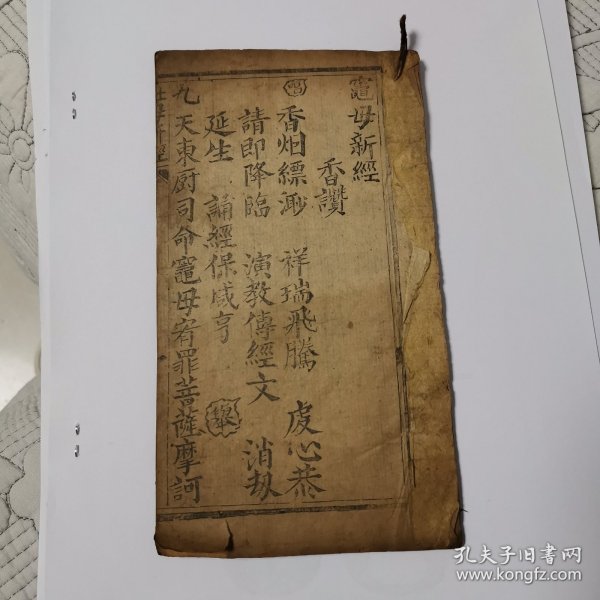 竈母新經
香讚
唱 香烟縹渺 祥瑞飛騰 虔心恭
請即降臨 演教傳經文 消刼
延生 誦經保咸亨 舉
九天東厨司命竈母宥罪菩薩摩訶
新經
孔夫子旧书网
www.kongfz.com